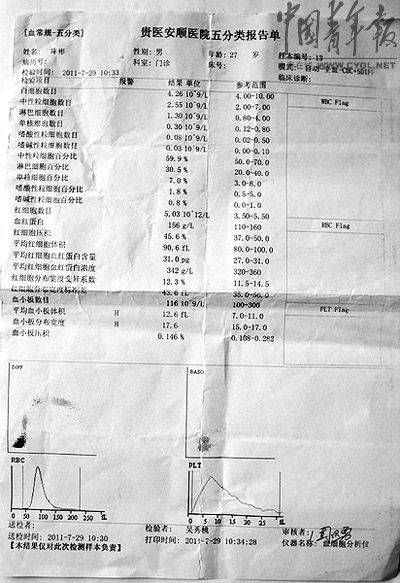 中国青年报
WWW.CYOL.NET
[血常规-五分类] 贵医安顺医院五分类报告单
姓名: 彬 性别: 男 年龄: 27 岁 样本编号: 13
病历号: 科室: 门诊 床号: 模式: 自动-全血-CBC+5DIFF
检验时间: 2011-7-29 10:33 临床诊断:
检验项目 报警 结果 单位 参考范围
白细胞数目 4.26 10^9/L 4.00-10.00
中性粒细胞数目 2.55 10^9/L 2.00-7.00
淋巴细胞数目 1.30 10^9/L 0.80-4.00
单核细胞数目 0.30 10^9/L 0.12-0.80
嗜酸性粒细胞数目 0.08 10^9/L 0.02-0.50
嗜碱性粒细胞数目 0.03 10^9/L 0.00-0.10
中性粒细胞百分比 59.9 % 50.0-70.0
淋巴细胞百分比 30.5 % 20.0-40.0
单核细胞百分比 7.0 % 3.0-8.0
嗜酸性粒细胞百分比 1.8 % 0.5-5.0
嗜碱性粒细胞百分比 0.8 % 0.0-1.0
红细胞数目 5.03 10^12/L 3.50-5.50
血红蛋白 156 g/L 110-160
红细胞压积 45.6 % 37.0-50.0
平均红细胞体积 90.6 fL 80.0-100.0
平均红细胞血红蛋白含量 31.0 pg 27.0-31.0
平均红细胞血红蛋白浓度 342 g/L 320-360
红细胞分布宽度变异系数 12.3 % 11.5-14.5
红细胞分布宽度标准差 43.6 fL 35.0-56.0
血小板数目 116 10^9/L 100-300
平均血小板体积 H 12.6 fL 7.0-11.0
血小板分布宽度 H 17.6 15.0-17.0
血小板压积 0.146 % 0.108-0.282
WBC Flag
RBC Flag
PLT Flag
DIFF BASO
RBC PLT
0 50 100 150 200 250 fL 0 5 10 15 20 25 30 fL
送检者: 检验者: 吴秀桃 审核者:
送检时间: 2011-7-29 10:30 打印时间: 2011-7-29 10:34:28 仪器名称: 血细胞分析仪
【本结果仅对此次检测样本负责】